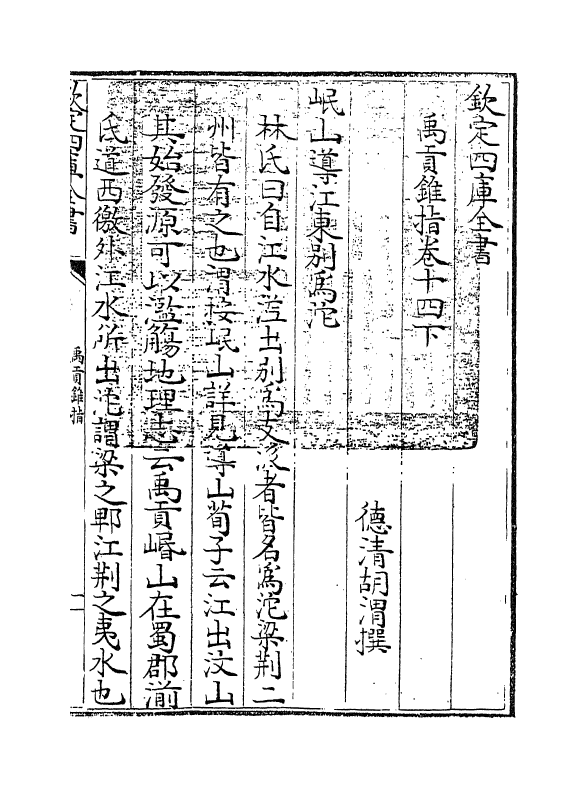 欽定四庫全書
禹貢錐指卷十四下
德清胡渭撰
岷山導江東别爲沱
林氏曰自江水溢出别爲支流者皆名爲沱梁荆二
州皆有之也渭按岷山詳見導山荀子云江出汶山
其始發源可以濫觴地理志云禹貢㟭山在蜀郡湔
氐道西徼外江水所出沱謂梁之郫江荆之夷水也
欽定四庫全書
禹貢錐指